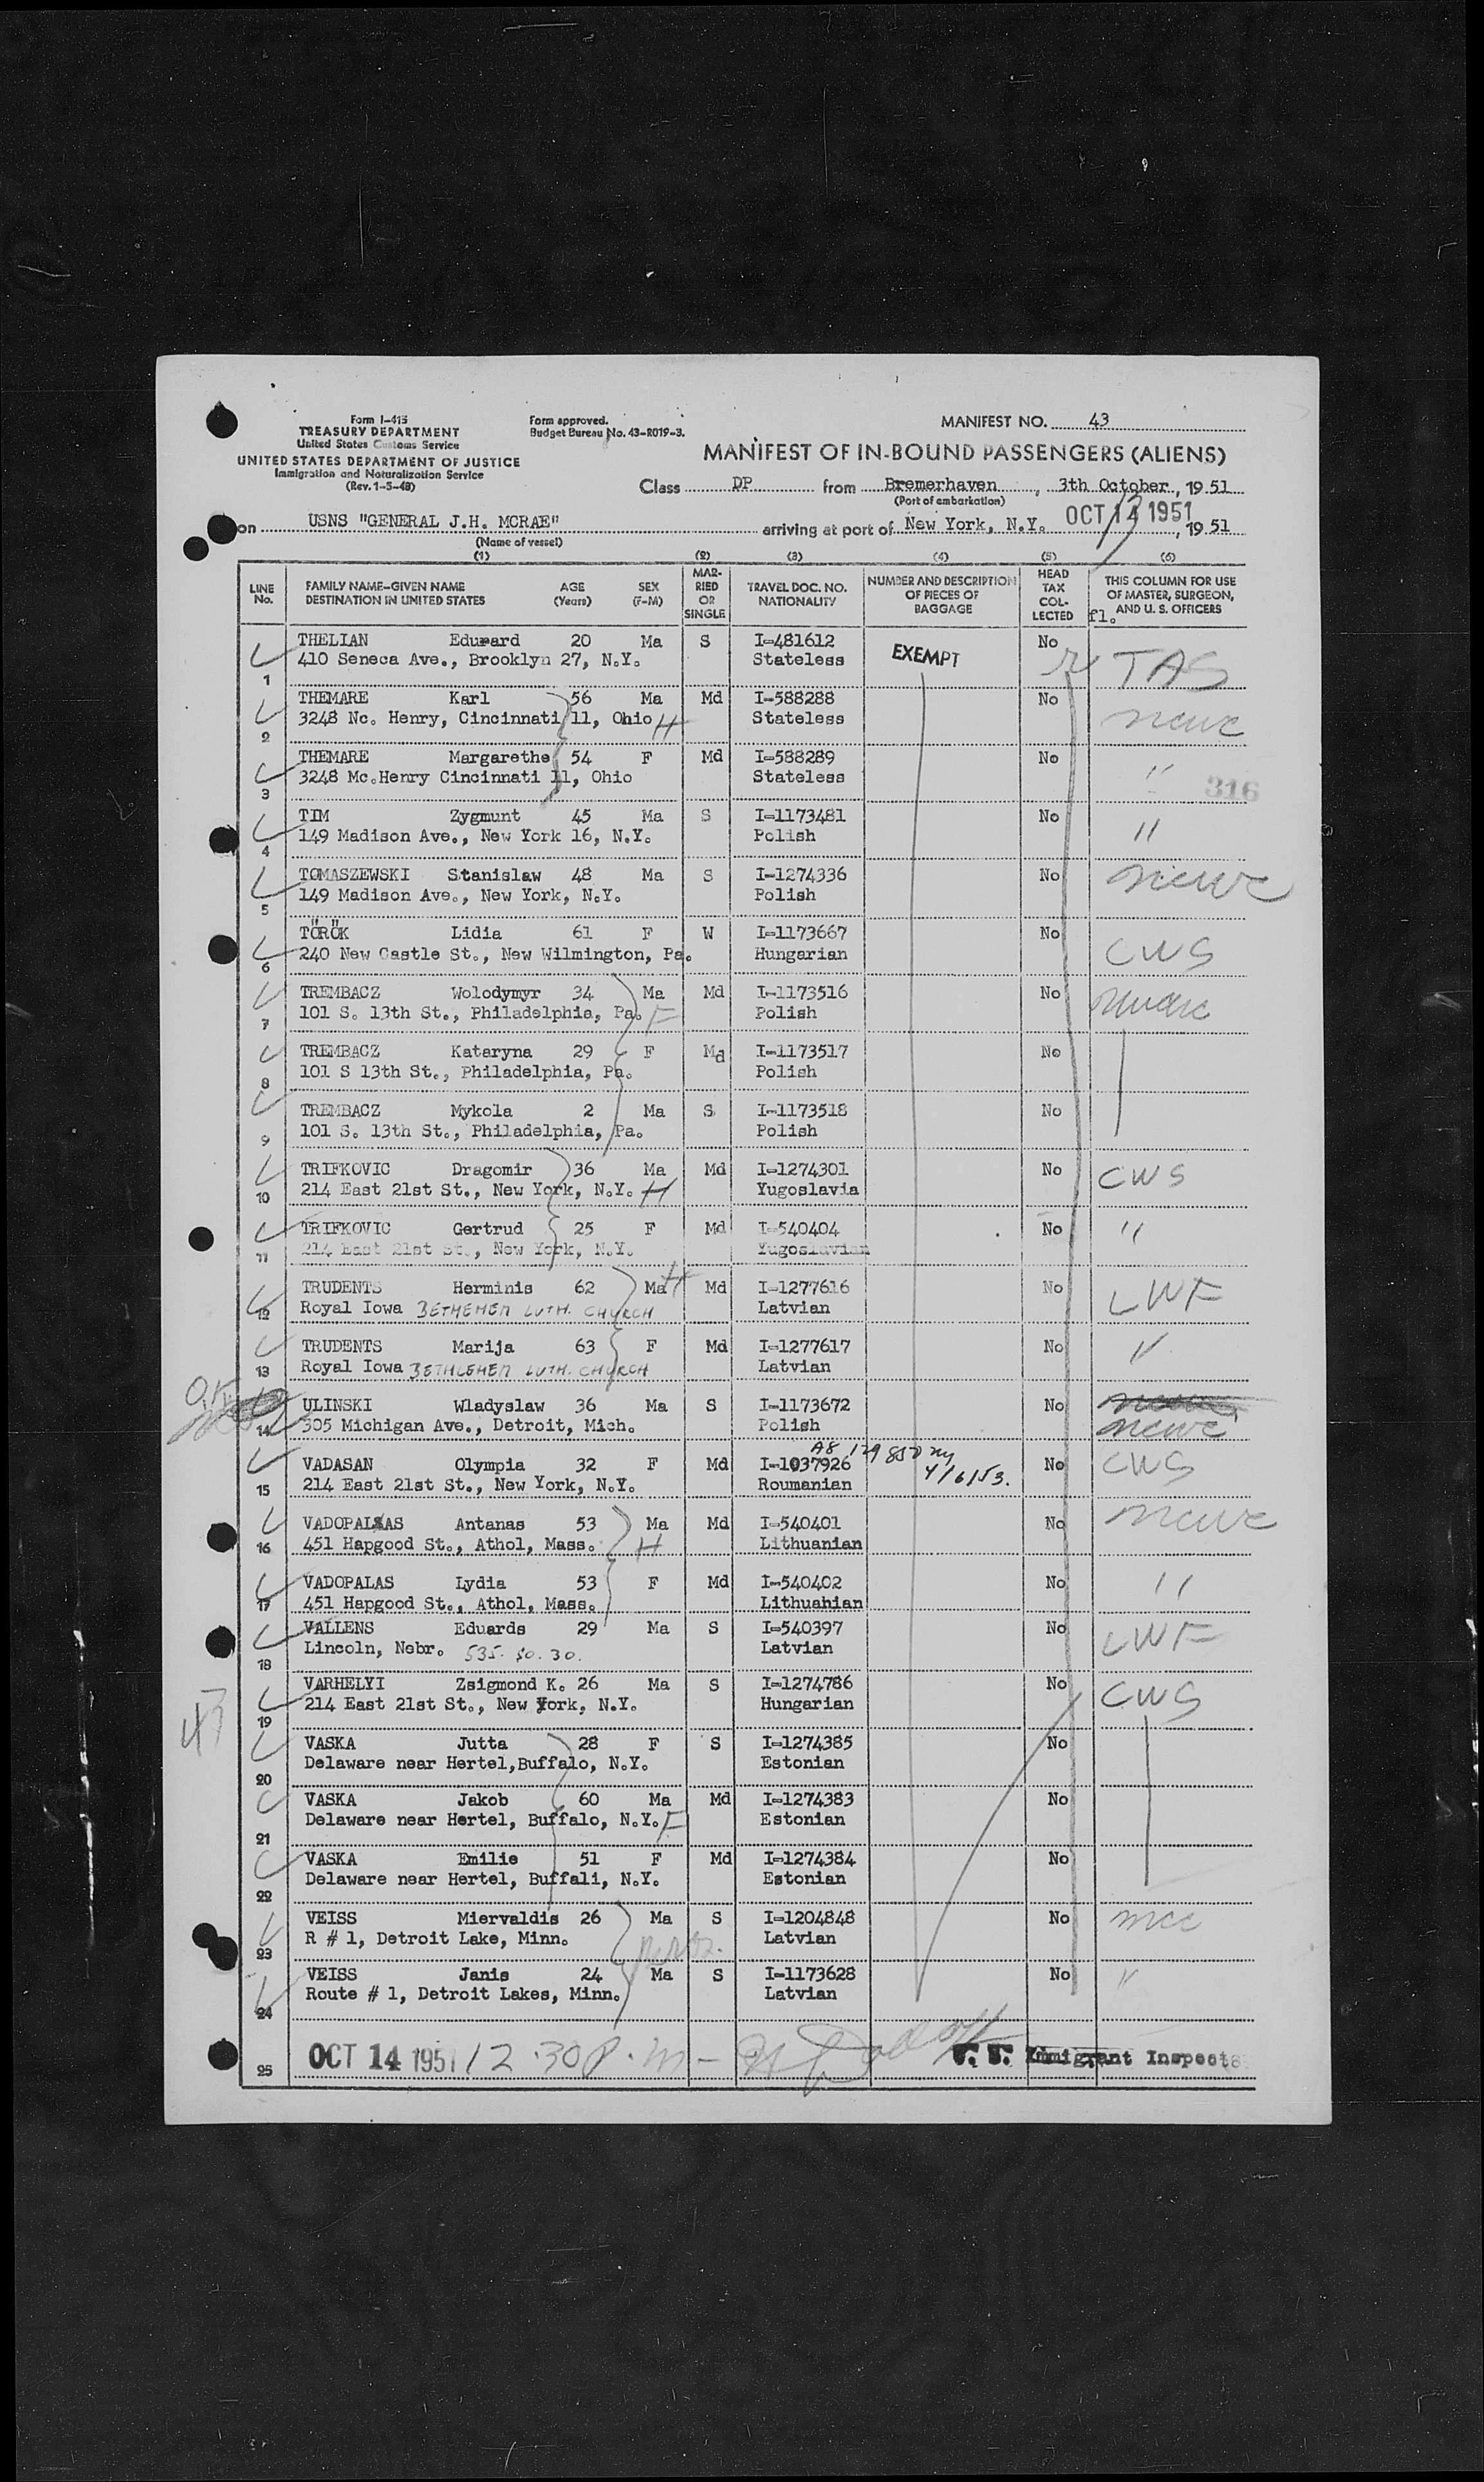 Form I-415
TREASURY DEPARTMENT
United States Customs Service
UNITED STATES DEPARTMENT OF JUSTICE
Immigration and Naturalization Service
(Rev. 1-5-48)
Form approved.
Budget Bureau No. 43-R019-3.
MANIFEST NO. 43
MANIFEST OF IN-BOUND PASSENGERS (ALIENS)
Class DP from Bremerhaven, 3th October, 1951
(Port of embarkation)
on USNS "GENERAL J.H. MCRAE" arriving at port of New York, N.Y. OCT 14 1951 13, 1951
(Name of vessel)
(1) (2) (3) (4) (5) (6)
LINE No. FAMILY NAME-GIVEN NAME DESTINATION IN UNITED STATES AGE (Years) SEX (F-M) MARRIED OR SINGLE TRAVEL DOC. NO. NATIONALITY NUMBER AND DESCRIPTION OF PIECES OF BAGGAGE HEAD TAX COLLECTED THIS COLUMN FOR USE OF MASTER, SURGEON, AND U. S. OFFICERS
fl.
THELIAN Eduward 20 Ma S I-481612 EXEMPT No TAS
1 410 Seneca Ave., Brooklyn 27, N.Y. Stateless
THEMARE Karl 56 Ma Md I-588288 No ncwc
2 3248 Nc. Henry, Cincinnati 11, Ohio H Stateless
THEMARE Margarethe 54 F Md I-588289 No "
3 3248 Mc.Henry Cincinnati 11, Ohio Stateless
316
TIM Zygmunt 45 Ma S I-1173481 No "
4 149 Madison Ave., New York 16, N.Y. Polish
TOMASZEWSKI Stanislaw 48 Ma S I-1274336 No ncwc
5 149 Madison Ave., New York, N.Y. Polish
TÖRÖK Lidia 61 F W I-1173667 No CWS
6 240 New Castle St., New Wilmington, Pa. Hungarian
TREMBACZ Wolodymyr 34 Ma Md I-1173516 No
7 101 S. 13th St., Philadelphia, Pa. F Polish
TREMBACZ Kataryna 29 F Md I-1173517 No
8 101 S 13th St., Philadelphia, Pa. Polish
TREMBACZ Mykola 2 Ma S I-1173518 No
9 101 S. 13th St., Philadelphia, Pa. Polish
TRIFKOVIC Dragomir 36 Ma Md I-1274301 No CWS
10 214 East 21st St., New York, N.Y. H Yugoslavia
TRIFKOVIC Gertrud 25 F Md I-540404 No "
11 214 East 21st St., New York, N.Y. Yugoslavian
TRUDENTS Herminis 62 Ma H Md I-1277616 No LWF
12 Royal Iowa BETHEHEM LUTH. CHURCH Latvian
TRUDENTS Marija 63 F Md I-1277617 No "
13 Royal Iowa BETHLEHEM LUTH. CHURCH Latvian
ULINSKI Wladyslaw 36 Ma S I-1173672 No
14 305 Michigan Ave., Detroit, Mich. Polish ncwc
A8 129 850 ny
VADASAN Olympia 32 F Md I-1037926 4/6/53. No CWS
15 214 East 21st St., New York, N.Y. Roumanian
VADOPALXAS Antanas 53 Ma Md I-540401 No ncwc
16 451 Hapgood St., Athol, Mass. H Lithuanian
VADOPALAS Lydia 53 F Md I-540402 No "
17 451 Hapgood St., Athol, Mass. Lithuahian
VALLENS Eduards 29 Ma S I-540397 No LWF
18 Lincoln, Nebr. 535. So. 30. Latvian
VARHELYI Zsigmond K. 26 Ma S I-1274786 No CWS
19 214 East 21st St., New York, N.Y. Hungarian
47
VASKA Jutta 28 F S I-1274385 No
20 Delaware near Hertel,Buffalo, N.Y. Estonian
VASKA Jakob 60 Ma Md I-1274383 No
21 Delaware near Hertel, Buffalo, N.Y. F Estonian
VASKA Emilie 51 F Md I-1274384 No
22 Delaware near Hertel, Buffali, N.Y. Estonian
VEISS Miervaldis 26 Ma S I-1204848 No mcc
23 R # 1, Detroit Lake, Minn. Latvian
VEISS Janis 24 Ma S I-1173628 No "
24 Route # 1, Detroit Lakes, Minn. Latvian
25 OCT 14 1951 12.30 P.m - U. S. Immigrant Inspector